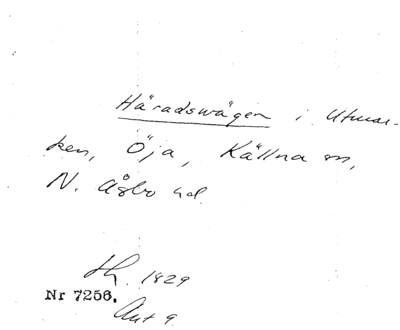 Häradswägen i Utmar-
ken, Öja, Källna sn,
N. Åsbo hd.
1829
Nr 7256.
Akt 9